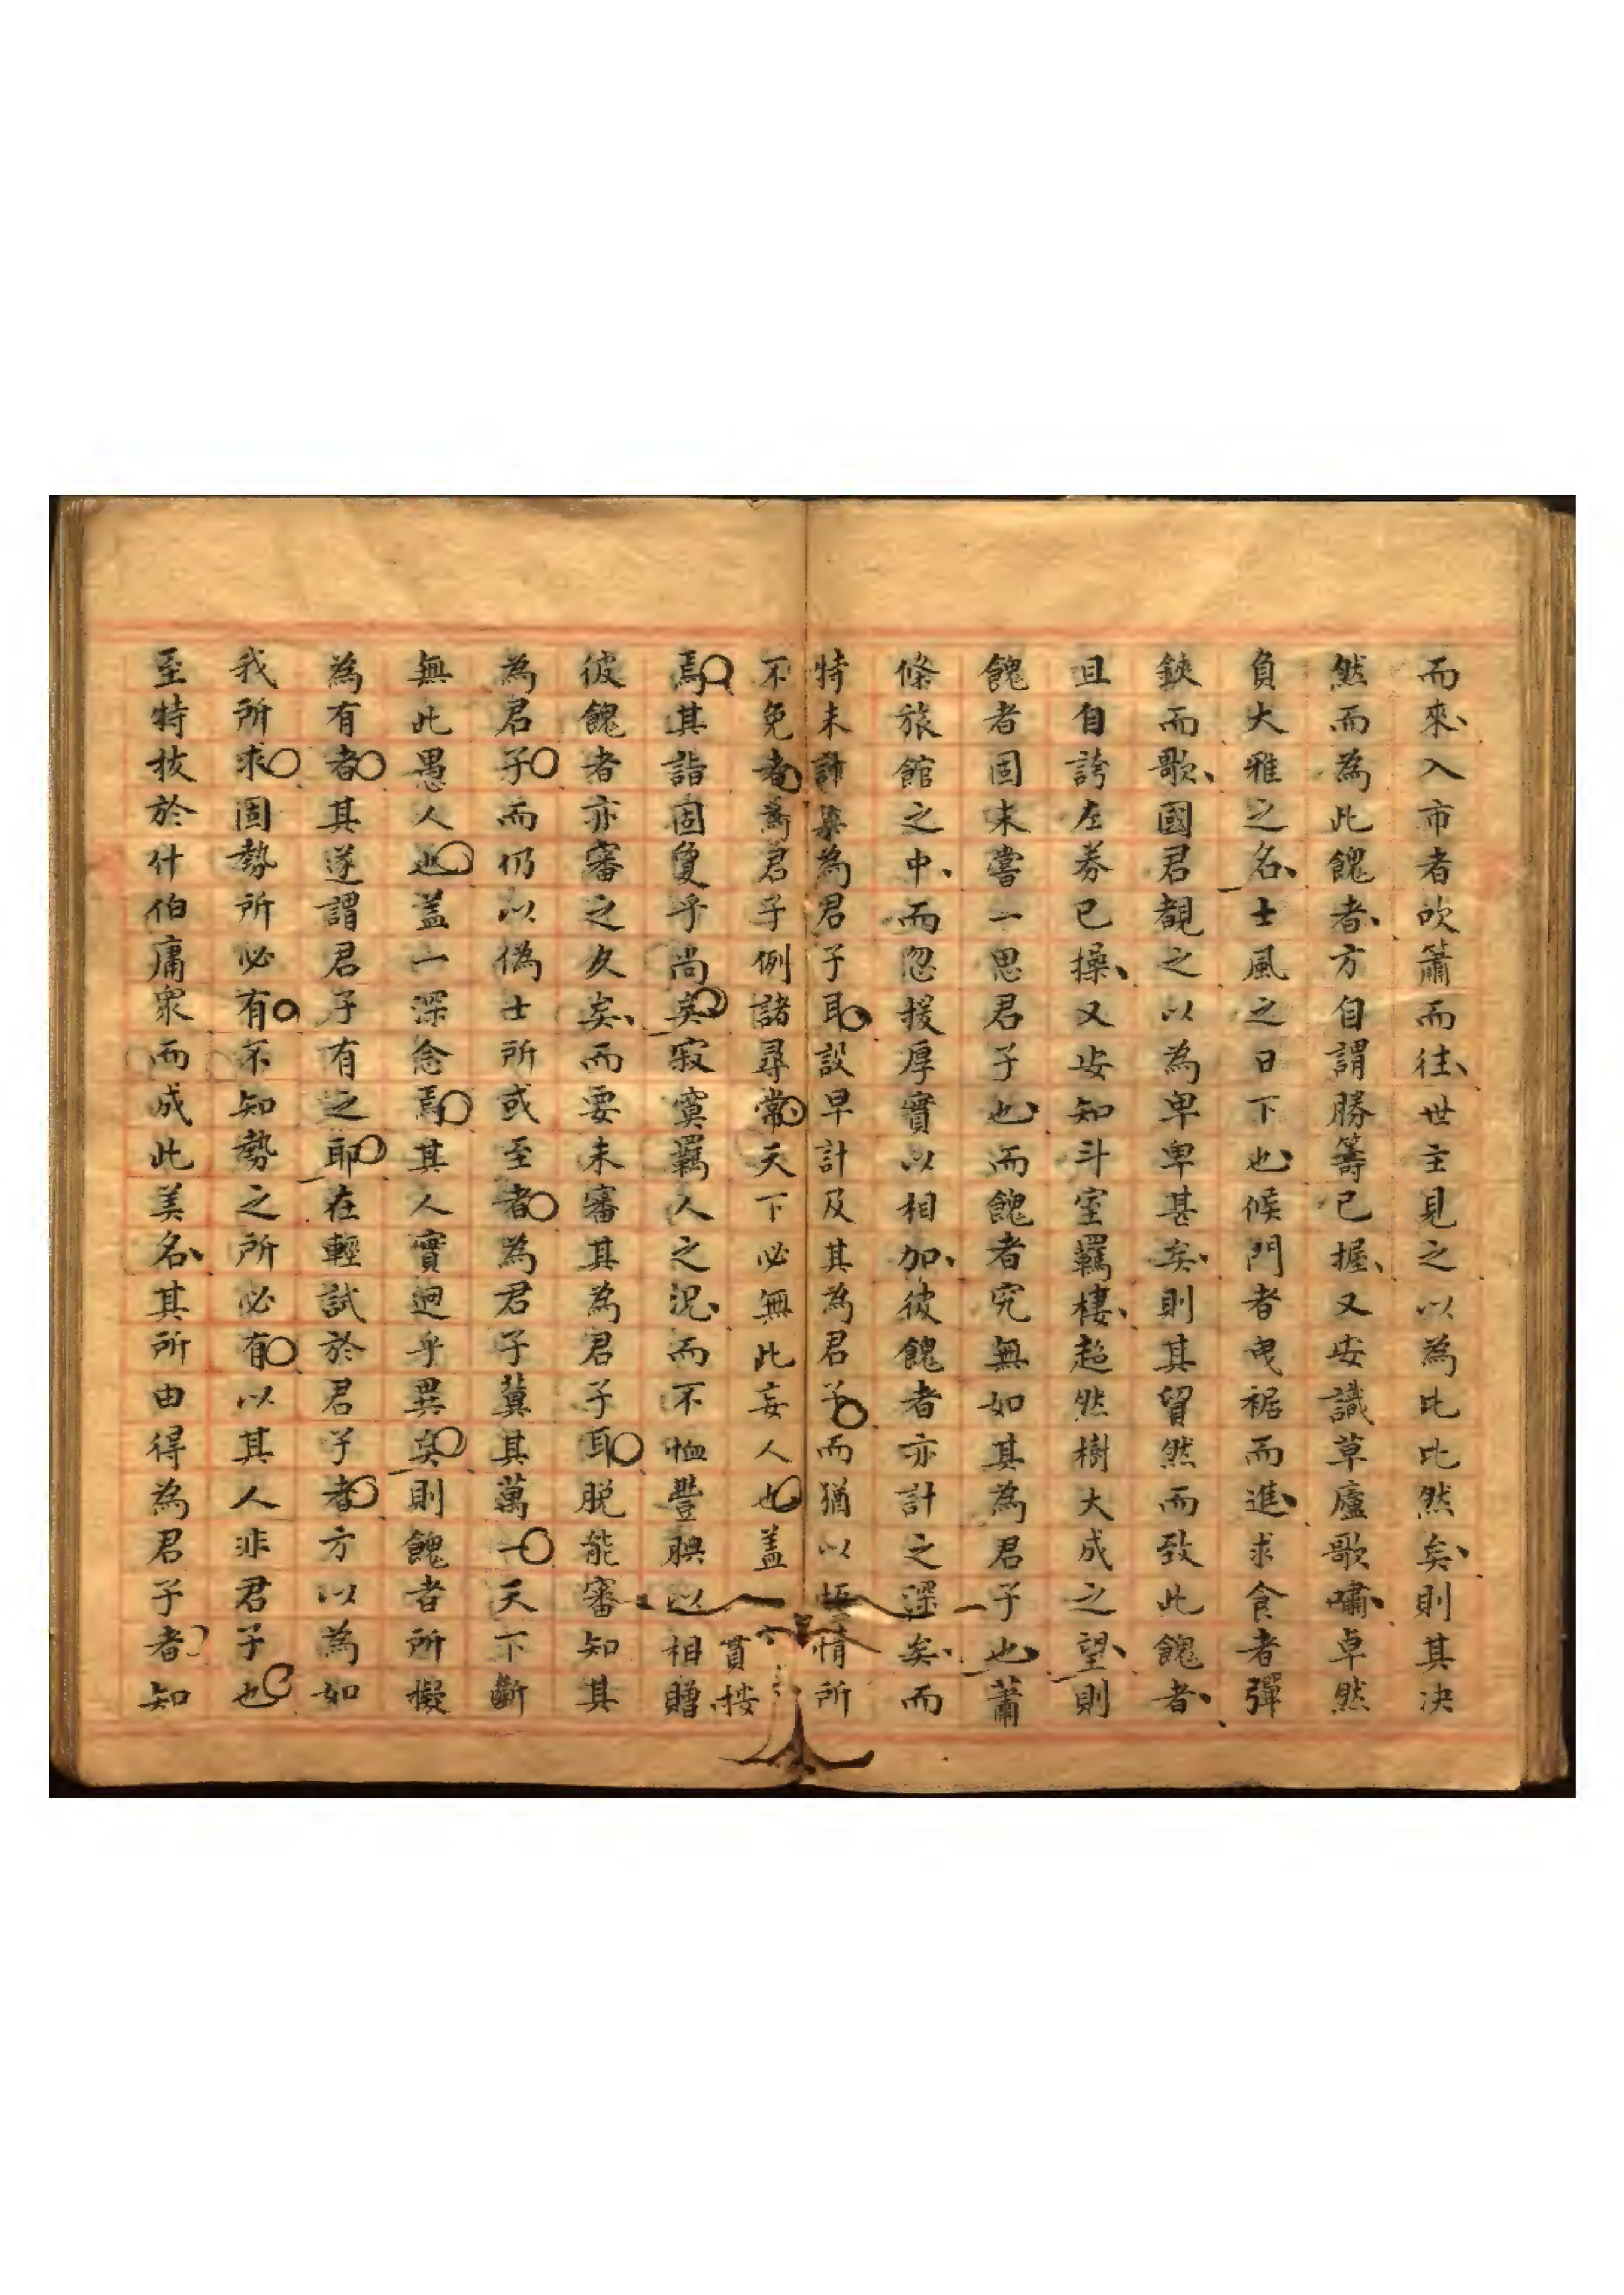 而來入市者吹簫而往世主見之以為比比然矣則其決
然而為此餽者方自謂勝籌已握又安識草廬歌嘯卓然
負大雅之名士風之日下也候門者曳裾而進求食者彈
鋏而歌國君覩之以為卑卑甚矣則其貿然而致此餽者
且自誇左券已操又安知斗室羈棲超然樹大成之望則
餽者固未嘗一思君子也而餽者究無如其為君子也蕭
條旅館之中而忽援厚實以相加彼餽者亦計之深矣而
特未計其為君子耳設早計及其為君子而猶以情所
不免者為君子例諸尋常天下必無此妄人也蓋
焉其詣固敻乎尚矣寂寞羈人之況而不恤豐腆以相贈
彼餽者亦審之久矣而要未審其為君子耳脫能審知其
為君子而仍以偽士所或至者為君子冀其萬一天下斷
無此愚人也蓋一深念焉其人實迥乎異矣則餽者所擬
為有者其遂謂君子有之耶在輕試於君子者方以為如
我所求固勢所必有不知勢之所必有以其人非君子也
至特拔於什伯庸衆而成此美名其所由得為君子者知